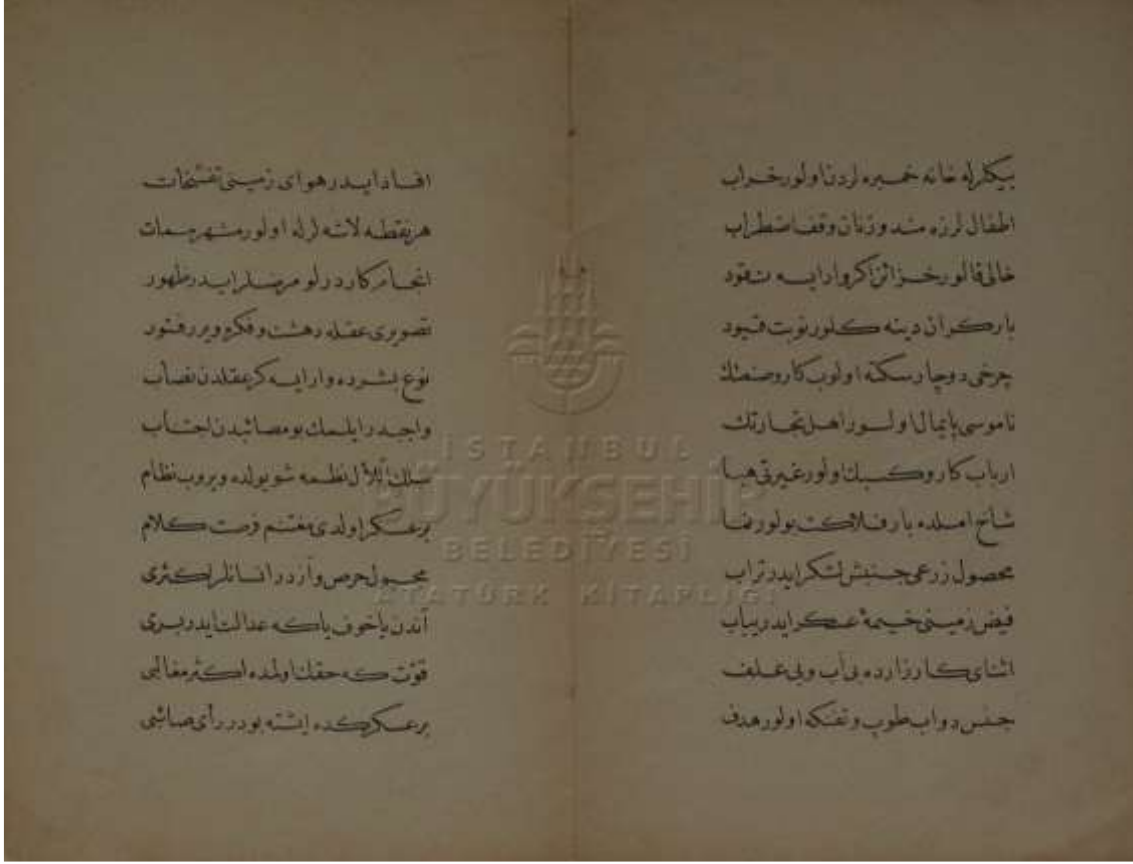 بیکلرله خانه خمبره لردن اولور خراب
اطفال لرزه مند و زنان وقف اضطراب
خالی قالور خزائن اکر وار ایسه نقود
بار کران دینه کلور نوبت قیود
چرخی دوچار سکته اولوب کار و صنعتك
ناموسی پایمال اولور اهل تجارتك
ارباب کار و کسبك اولور غیرتی هبا
شاخ املده بار فلاکت بولور نما
محصول زرعی جنبش لشکر ایدر تراب
فیض زمینی خیمهٔ عسکر ایدر یباب
اثنای کارزارده بی آب و بی علف
جنس دواب طوپ و تفنکه اولور هدف
افساد ایدر هوای زمینی تفسخات
هر نقطه لاشه لرله اولور مشهر ممات
انجام کار درلو مرضلر ایدر ظهور
تصویری عقله دهشت و فکره ویرر فتور
نوع بشرده وار ایسه کر عقلدن نصاب
واجبدر ایلمك بو مصائبدن اجتناب
سلك لآل نظمه شو یولده ویروب نظام
بر عسکر اولدی مغتنم فرصت کلام
مجبول حرص و آزدر انسانلر اکثری
آندن یا خوف یاکه عدالت ایدر بری
قوّت که حقك اولمده اکثر مغالبی
بر عسکرکده ایشته بودر رأی صائبی
İSTANBUL
BÜYÜKŞEHİR
BELEDİYESİ
ATATÜRK KİTAPLIĞI